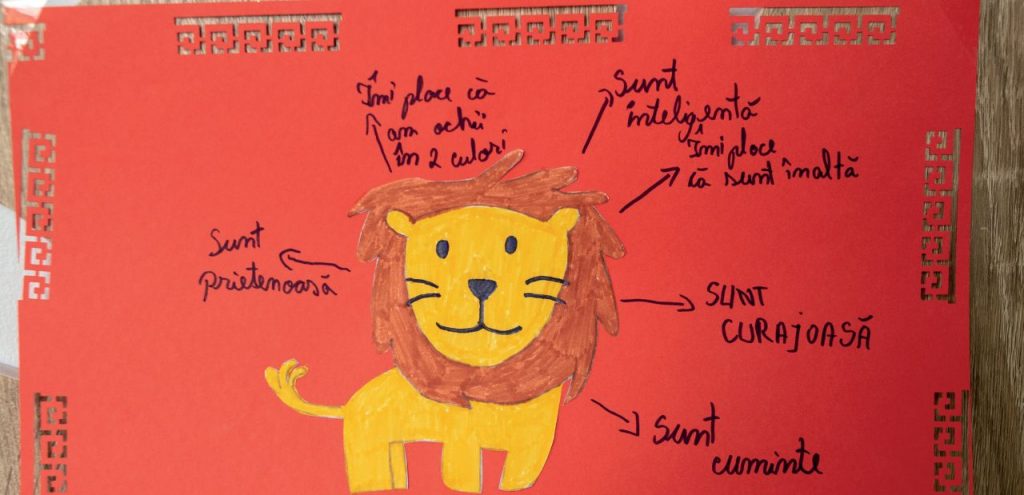 Îmi place că
am ochii
în 2 culori
Sunt
inteligentă
Îmi place
că sunt înaltă
Sunt
prietenoasă
SUNT
CURAJOASĂ
Sunt
cuminte